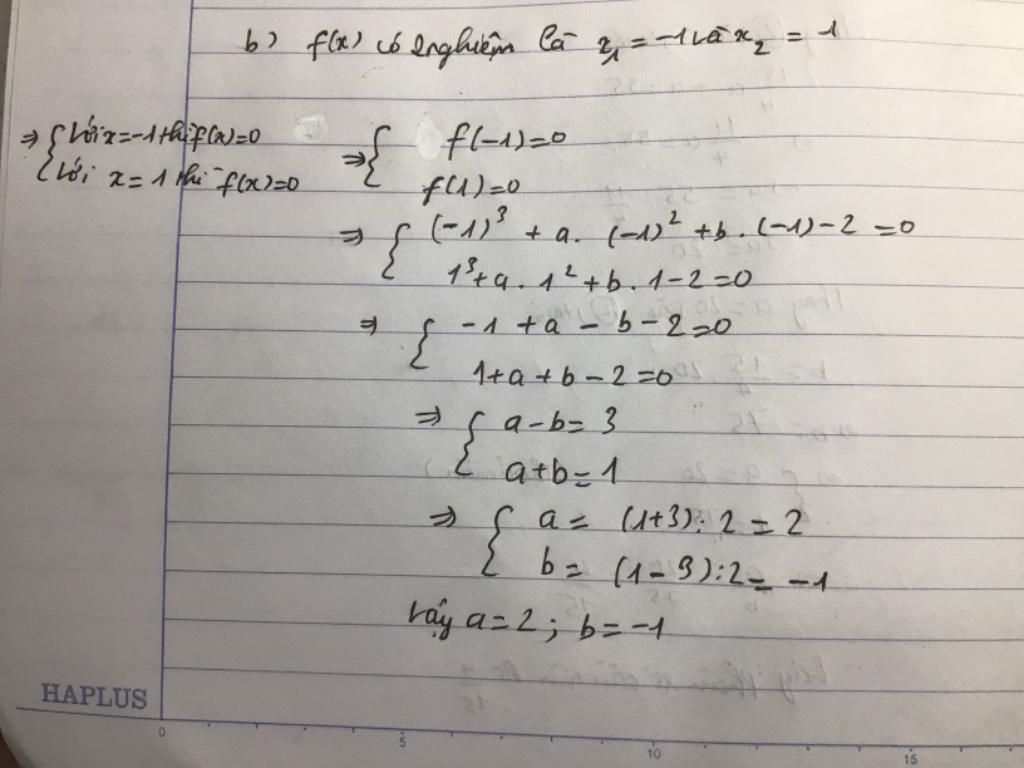 b) f(x) có 2 nghiệm là x₁ = -1 và x₂ = 1
⇒ { Với x = -1 thì f(x) = 0
Với x = 1 thì f(x) = 0
⇒ { f(-1) = 0
f(1) = 0
⇒ { (-1)³ + a. (-1)² + b. (-1) - 2 = 0
1³ + a. 1² + b. 1 - 2 = 0
⇒ { -1 + a - b - 2 = 0
1 + a + b - 2 = 0
⇒ { a - b = 3
a + b = 1
⇒ { a = (1+3): 2 = 2
b = (1-3): 2 = -1
Vậy a = 2; b = -1
HAPLUS
0 5 10 15